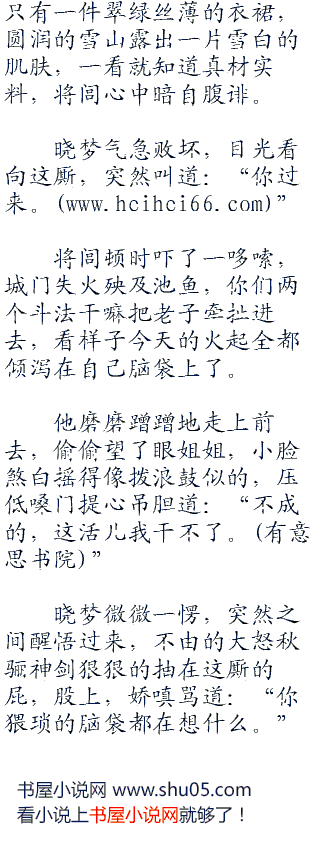 只有一件翠绿丝薄的衣裙，
圆润的雪山露出一片雪白的
肌肤，一看就知道真材实
料，将闾心中暗自腹诽。
晓梦气急败坏，目光看
向这厮，突然叫道：“你过
来。(www.hcihci66.com)”
将闾顿时吓了一哆嗦，
城门失火殃及池鱼，你们两
个斗法干嘛把老子牵扯进
去，看样子今天的火起全都
倾泻在自己脑袋上了。
他磨磨蹭蹭地走上前
去，偷偷望了眼姐姐，小脸
煞白摇得像拨浪鼓似的，压
低嗓门提心吊胆道：“不成
的，这活儿我干不了。(有意
思书院)”
晓梦微微一愣，突然之
间醒悟过来，不由的大怒秋
骊神剑狠狠的抽在这厮的
屁，股上，娇嗔骂道：“你
猥琐的脑袋都在想什么。”
书屋小说网 www.shu05.com
看小说上书屋小说网就够了！